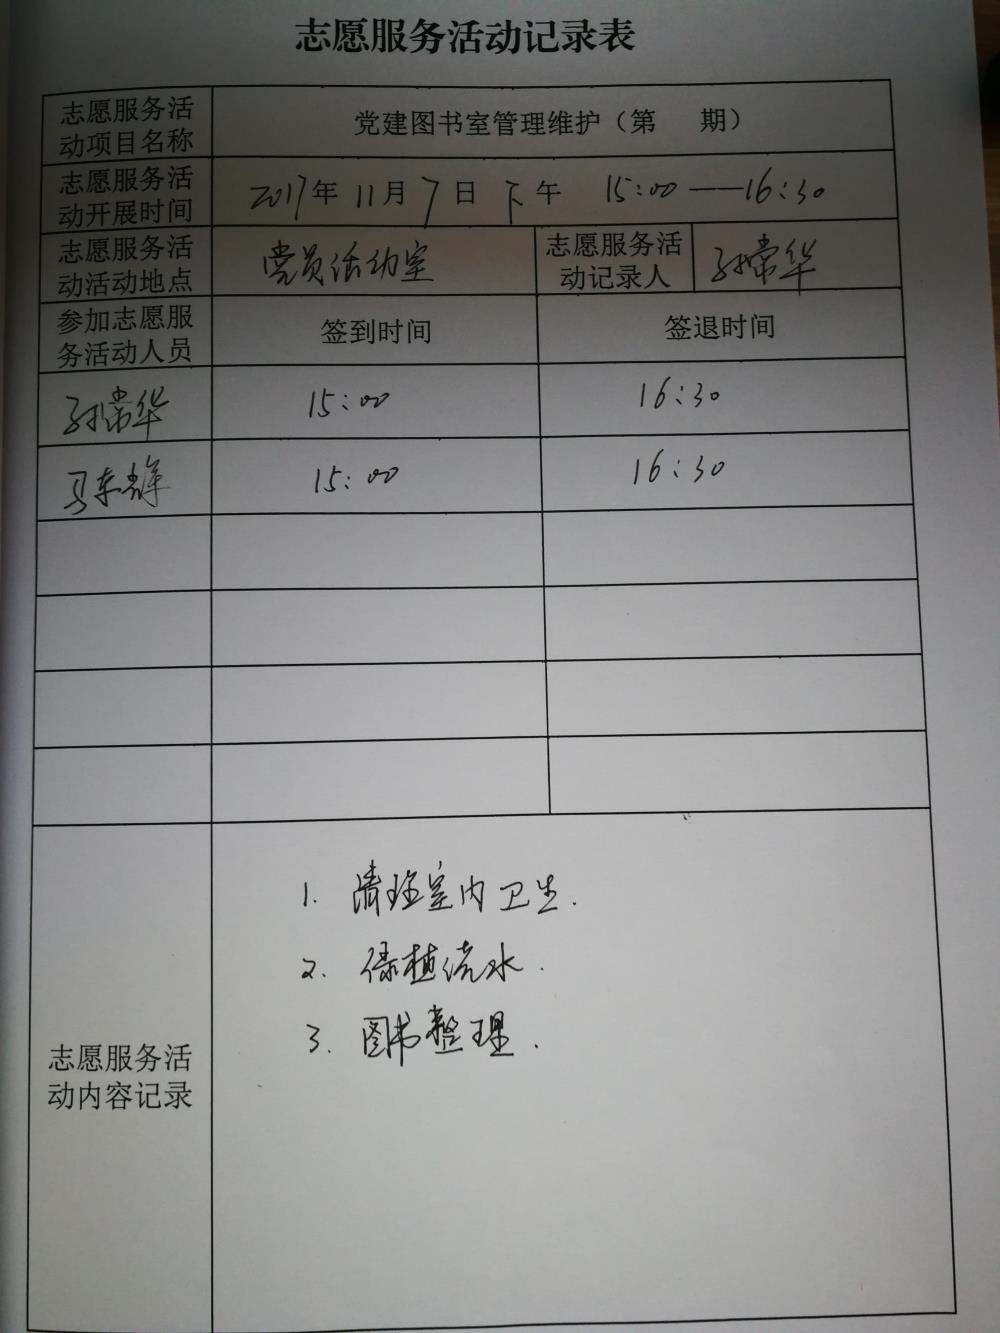 志愿服务活动记录表
志愿服务活
动项目名称
党建图书室管理维护（第 期）
志愿服务活
动开展时间
2017年 11月 7日 下午 15:00——16:30
志愿服务活
动活动地点
党员活动室
志愿服务活
动记录人
孙常华
参加志愿服
务活动人员
签到时间
签退时间
孙常华
15:00
16:30
马东
15:00
16:30
志愿服务活
动内容记录
1. 清理室内卫生.
2. 绿植浇水.
3. 图书整理.